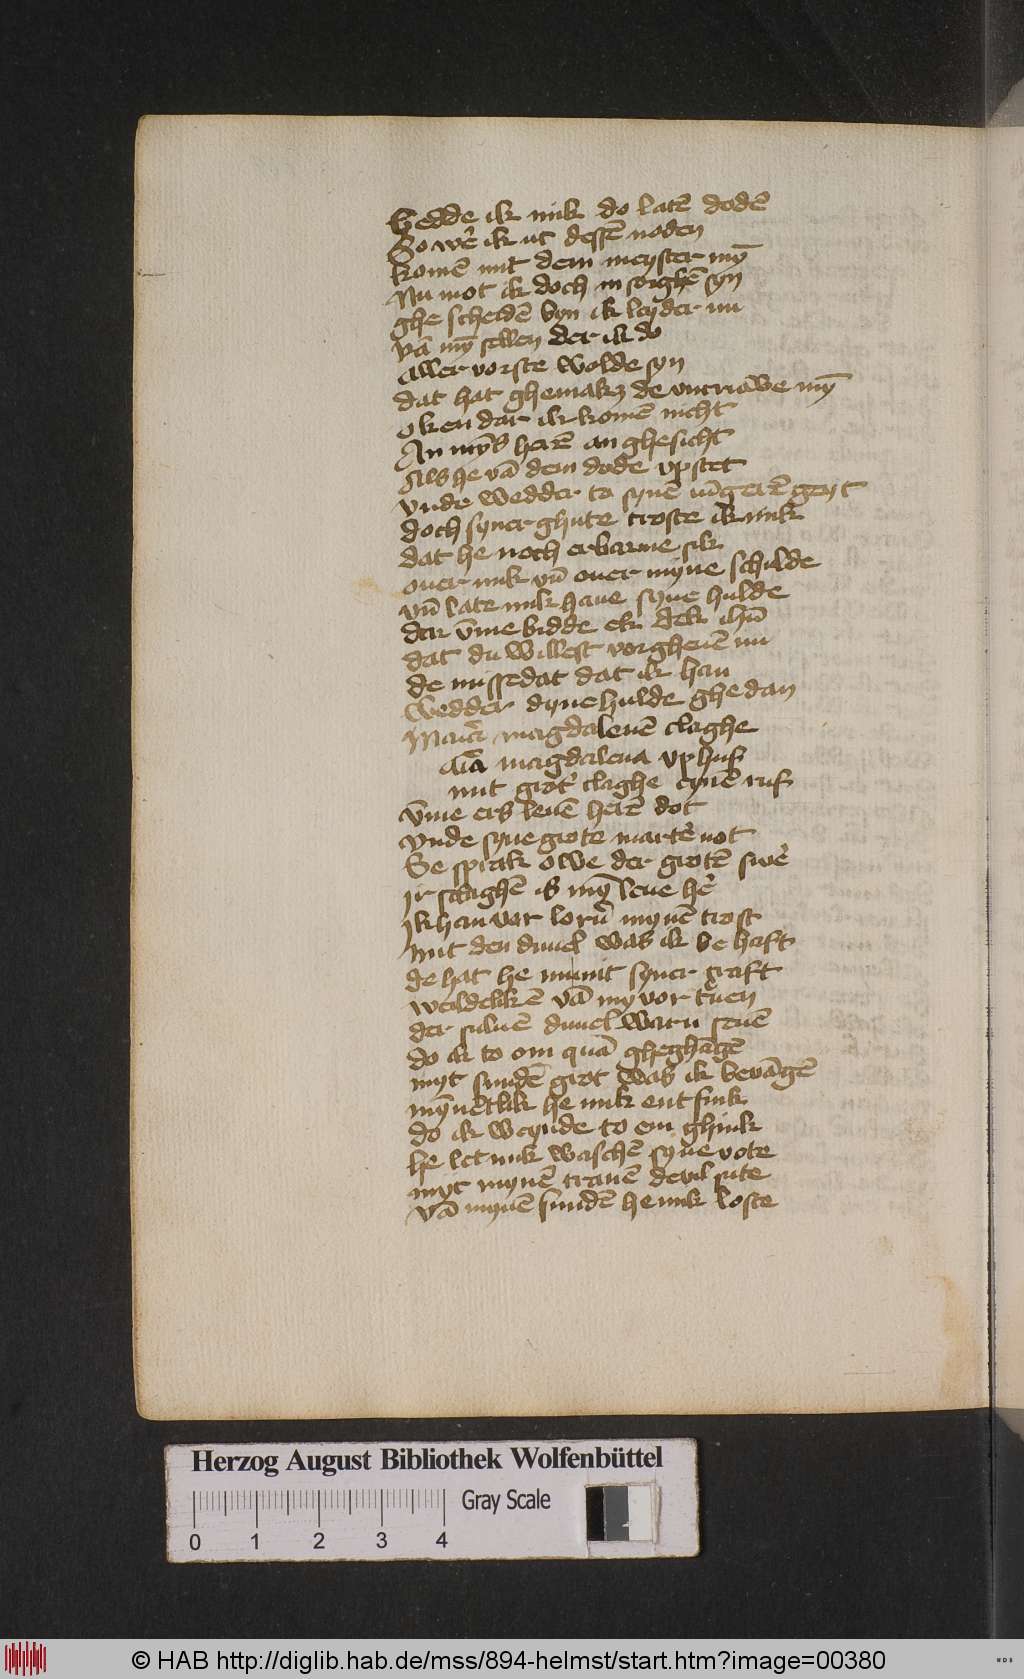 Hedde ik mik do latē dodē
So wer̄ ik ut dessē noden
komē mit dem meyster my̅
Nu mot ik doch in sorghē syn
ghe scheidē byn ik leyder nu
vā my̅ sellen der ik do
aller vorste wolde syn
dat hat ghemakz de vntruwe my̅
ok en dar ik komē nicht
An my̅s herē an ghesicht
Als he vā dem dode vpstet
vnde wedder to synē iu̅gerē geyt
doch syner ghute troste ik mik
dat he noch erbarme sik
ouer mik vn̄ ouer myne schulde
vn̄ late mik haue syne hulde
dar v̄me bidde ek dek ihū
dat du willest vorgheuē nu
de missedat dat ik han
wedder dyne hulde ghe dan
Maria magdalenē claghe
aīa magdalena vp huf
mit grot' claghe eynē ruf
v̄me ers leuē herē dot
vnde syne grote marter̄ not
Se sprak owe der grotē swer̄
Ir slaghē is my̅ leue her̄
Ik han vor lorn̄ mynē trost
Mit den duuel was ik be haft
de hat he mi mit syner craft
weldelikē vā my vor trēuen
der suluē duuel warn seuē
do ik to om quā gheghāgē
myt sundē grot was ik bevāgē
my̅netlik he mik ent fink
do ik weynde to em ghink
he let mik waschē syne vote
myt mynē tranē de vil sute
vā mynē sundē he mik loste
Herzog August Bibliothek Wolfenbüttel
Gray Scale
0 1 2 3 4
© HAB http://diglib.hab.de/mss/894-helmst/start.htm?image=00380